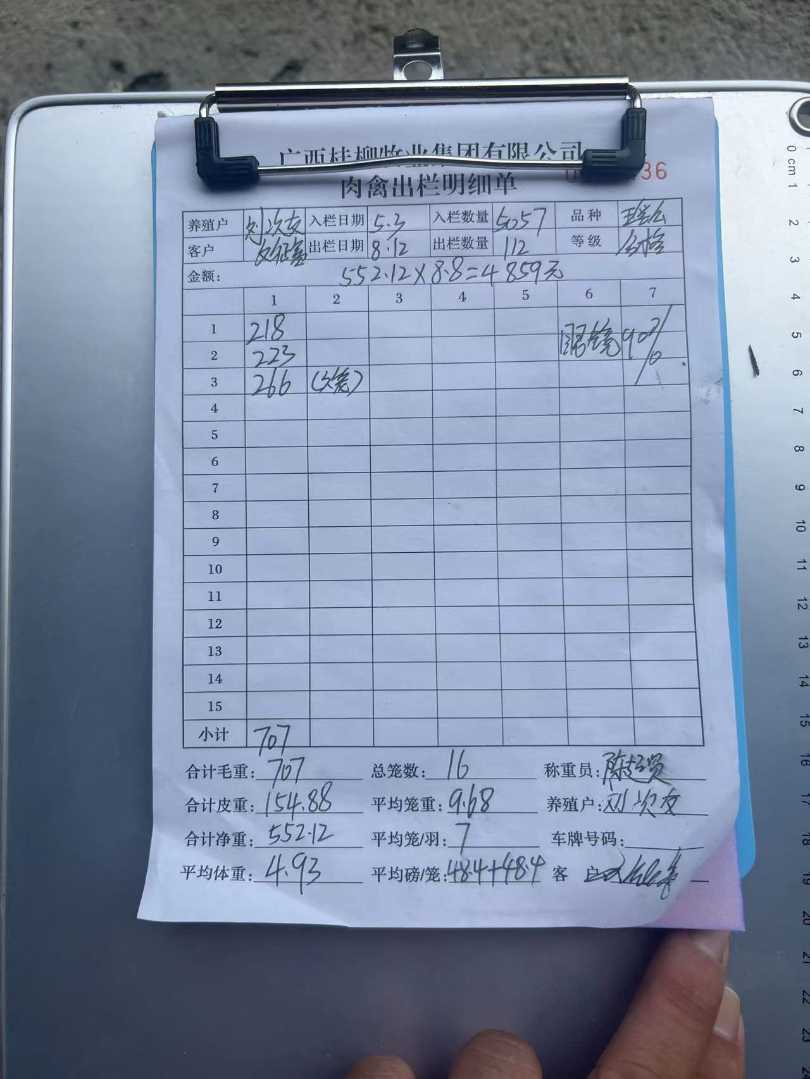 广西桂柳牧业集团有限公司
肉禽出栏明细单
36
养殖户 刘次友 入栏日期 5.3 入栏数量 5057 品种
客户 出栏日期 8.12 出栏数量 112 等级 合格
金额: 552.12×8.8=4859元
1 2 3 4 5 6 7
1 218
2 223 90%
3 266
4
5
6
7
8
9
10
11
12
13
14
15
小计 707
合计毛重: 707 总笼数: 16 称重员:
合计皮重: 154.88 平均笼重: 9.68 养殖户: 刘次友
合计净重: 552.12 平均笼/羽: 7 车牌号码:
平均体重: 4.93 平均磅/笼: 48.4+48.4 客 户
0 cm 1
2
3
4
5
6
7
8
9
10
11
12
13
14
15
16
17
18
19
20
21
22
23